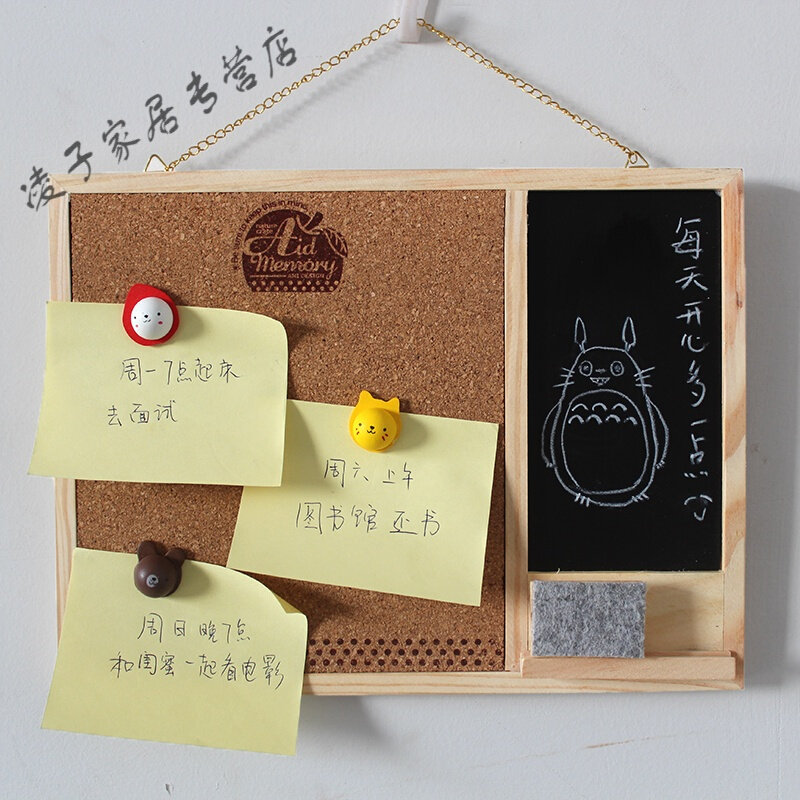 凌子家居专营店
keep this in mind
Aid
Memory
周一7点起床
去面试
周六上午
图书馆还书
周日晚7点
和闺蜜一起看电影
每天开心多一点